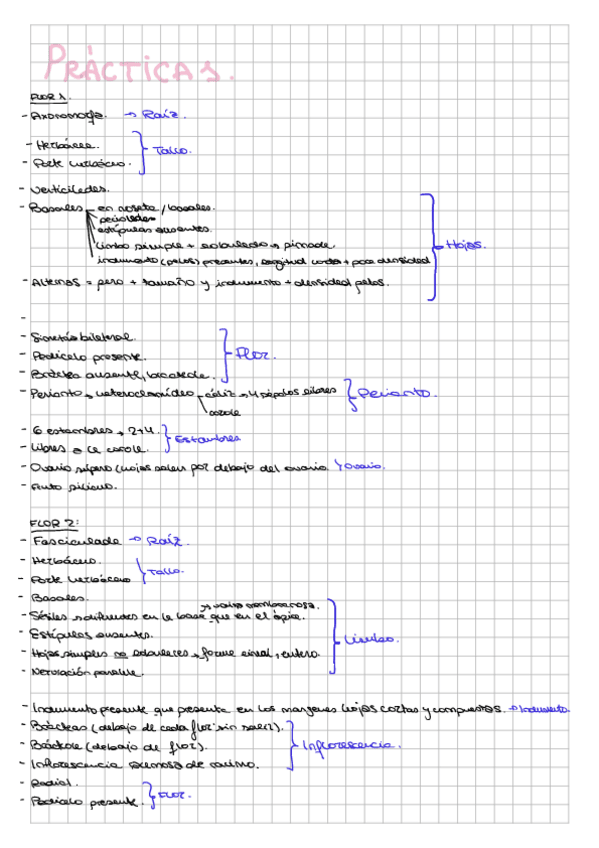 PRÁCTICAS.
FLOR 1.
- Axonomorfa. → Raíz.
- Herbácea.
- Porte herbáceo. } Tallo.
- Verticiladas.
- Basales en roseta / basales.
peciolada
estípulas ausentes.
Limbo simple + lobulado → pinnado.
indumento (pelos) presentes, longitud corta + poca densidad
- Alternas = pero + tamaño y indumento + densidad pelos.
} Hojas.
-
- Simetría bilateral.
- Pedicelo presente.
- Bráctea ausente, bracteola.
} Flor.
- Perianto → heteroclamídeo cáliz → 4 sépalos pilares } Perianto.
corola
- 6 estambres → 2+4.
- Libres a la corola.
} Estambres
- Ovario súpero (hojas salen por debajo del ovario } Ovario.
- Fruto silicua.
FLOR 2:
- Fasciculada → Raíz.
- Herbáceo.
- Porte herbáceo
} Tallo.
- Basales.
→ vaina membranosa.
- Sésiles → diferentes en la base que en el ápice.
- Estípulas ausentes.
- Hojas simples no lobulares → forma lineal, entero.
- Nervación paralela.
} Limbo.
- Indumento presente que presenta en los margenes hojas cortas y compuestas. → Indumento.
- Brácteas (debajo de cada flor sin salir).
- Bráctole (debajo de flor).
- Inflorescencia racemosa de racimo.
} Inflorescencia.
- Radial.
- Pedicelo presente.
} Flor.